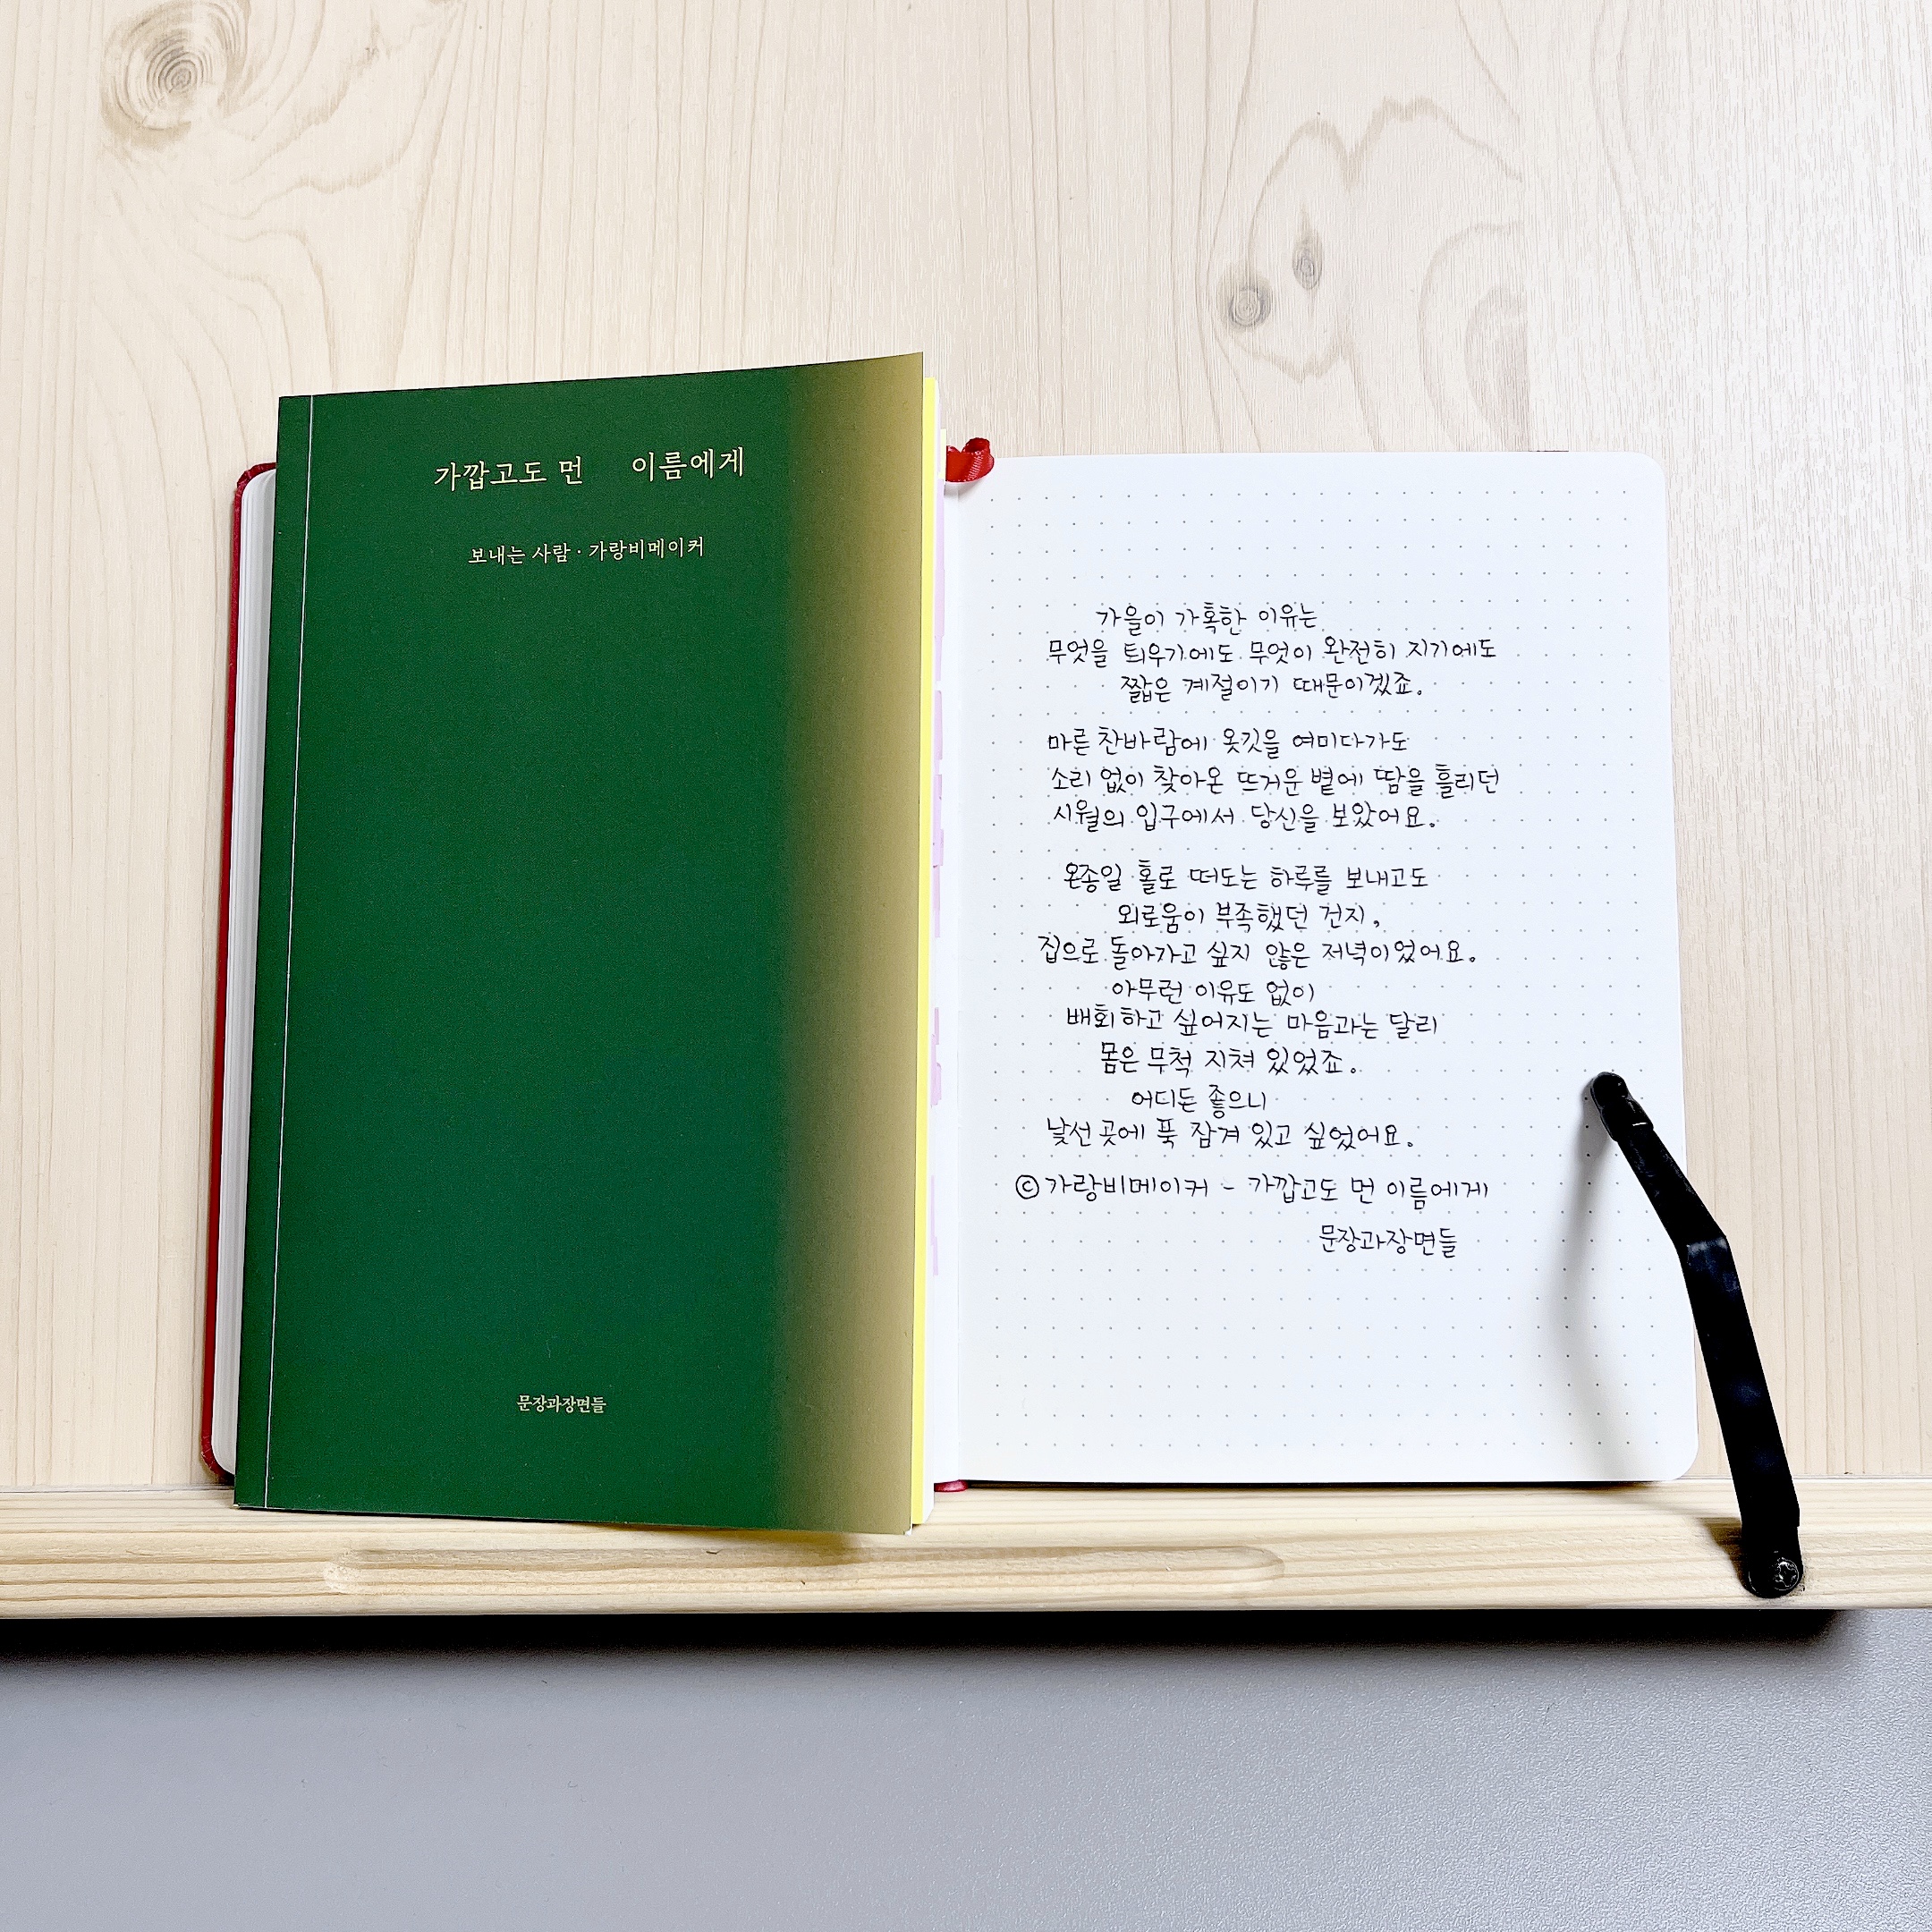 가깝고도 먼 이름에게
보내는 사람 · 가랑비메이커
문장과장면들
가을이 가혹한 이유는
무엇을 틔우기에도 무엇이 완전히 지기에도
짧은 계절이기 때문이겠죠.
마른 찬바람에 옷깃을 여미다가도
소리 없이 찾아온 뜨거운 볕에 땀을 흘리던
시월의 입구에서 당신을 보았어요.
온종일 홀로 떠도는 하루를 보내고도
외로움이 부족했던 건지,
집으로 돌아가고 싶지 않은 저녁이었어요.
아무런 이유도 없이
배회하고 싶어지는 마음과는 달리
몸은 무척 지쳐 있었죠.
어디든 좋으니
낯선 곳에 푹 잠겨 있고 싶었어요.
ⓒ 가랑비메이커 - 가깝고도 먼 이름에게
문장과장면들